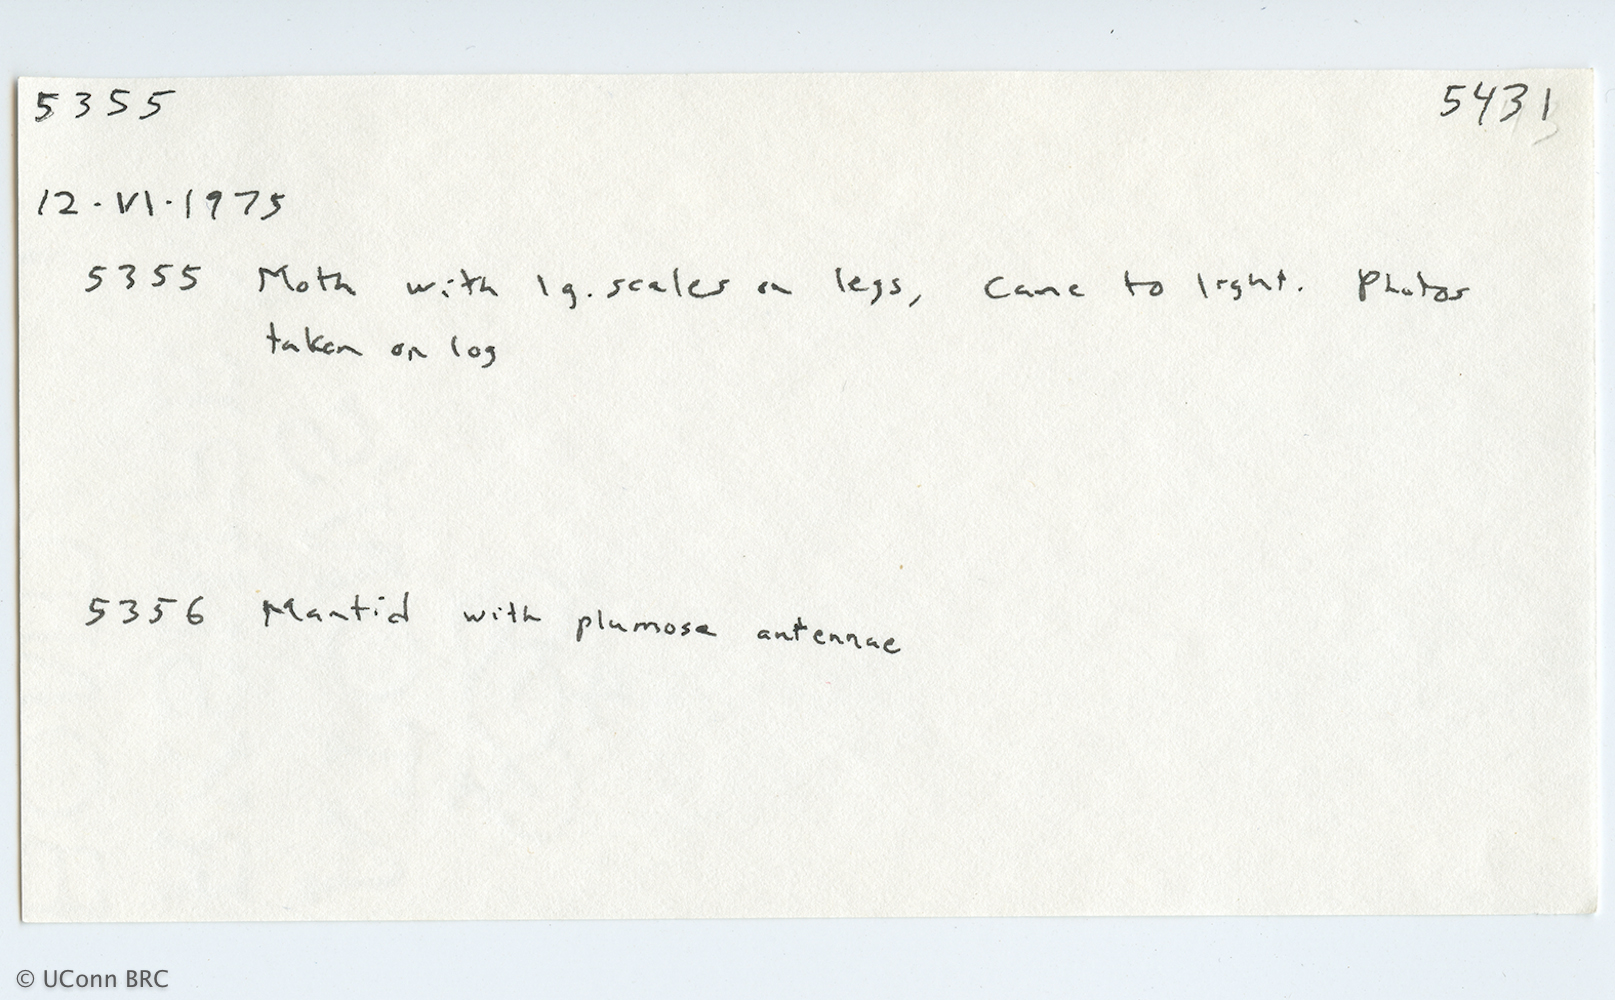 5355 5431
12·VI·1975
5355 Moth with lg. scales on legs, Came to light. Photos
taken on log
5356 Mantid with plumose antennae
© UConn BRC